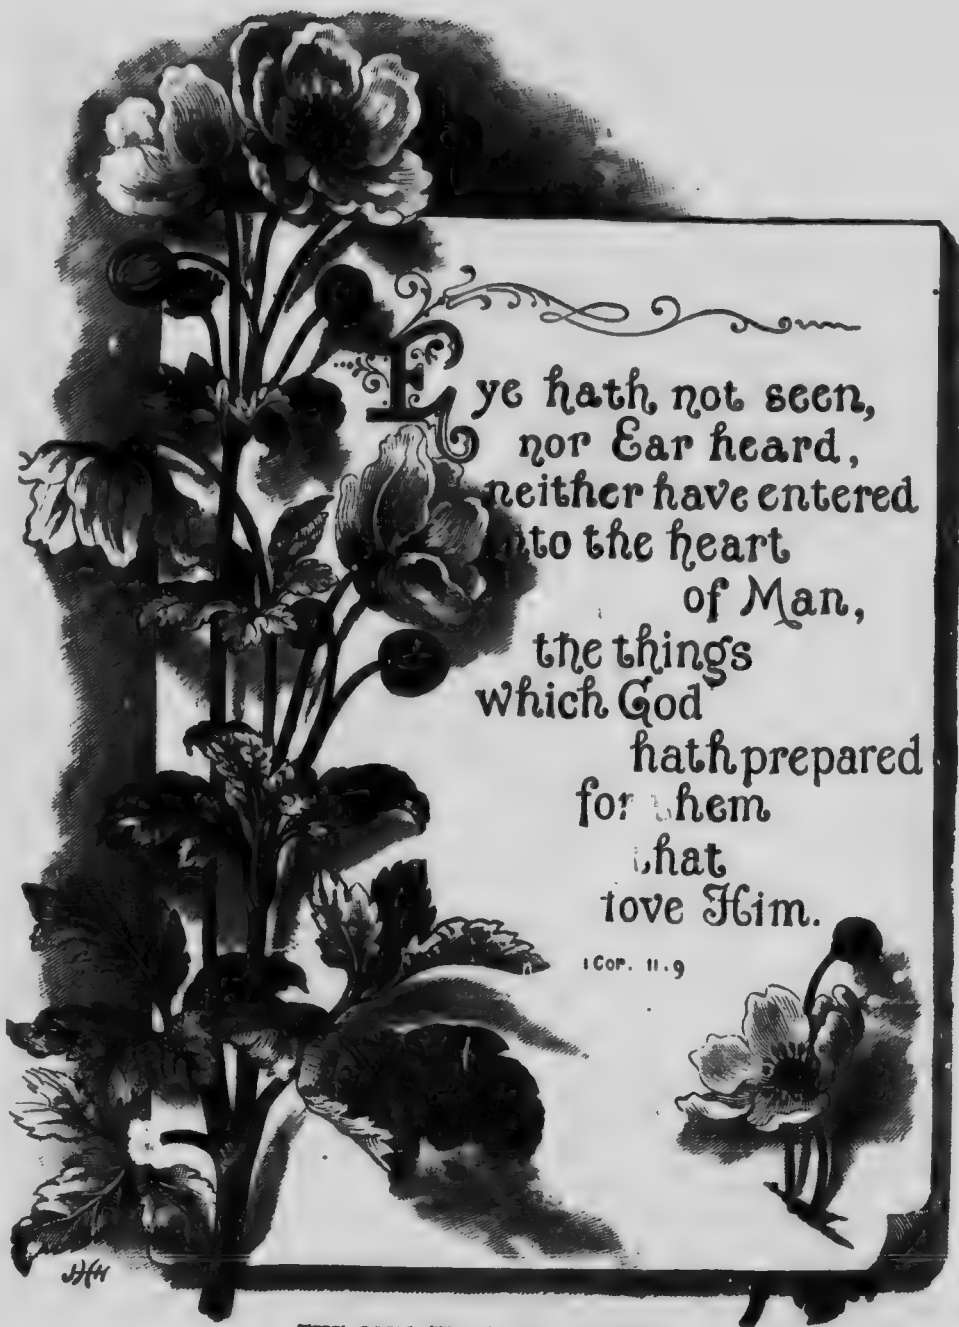 Eye hath not seen,
nor Ear heard,
neither have entered
into the heart
of Man,
the things
which God
hath prepared
for them
that
love Him.
1 Cor. 11.9
JHH